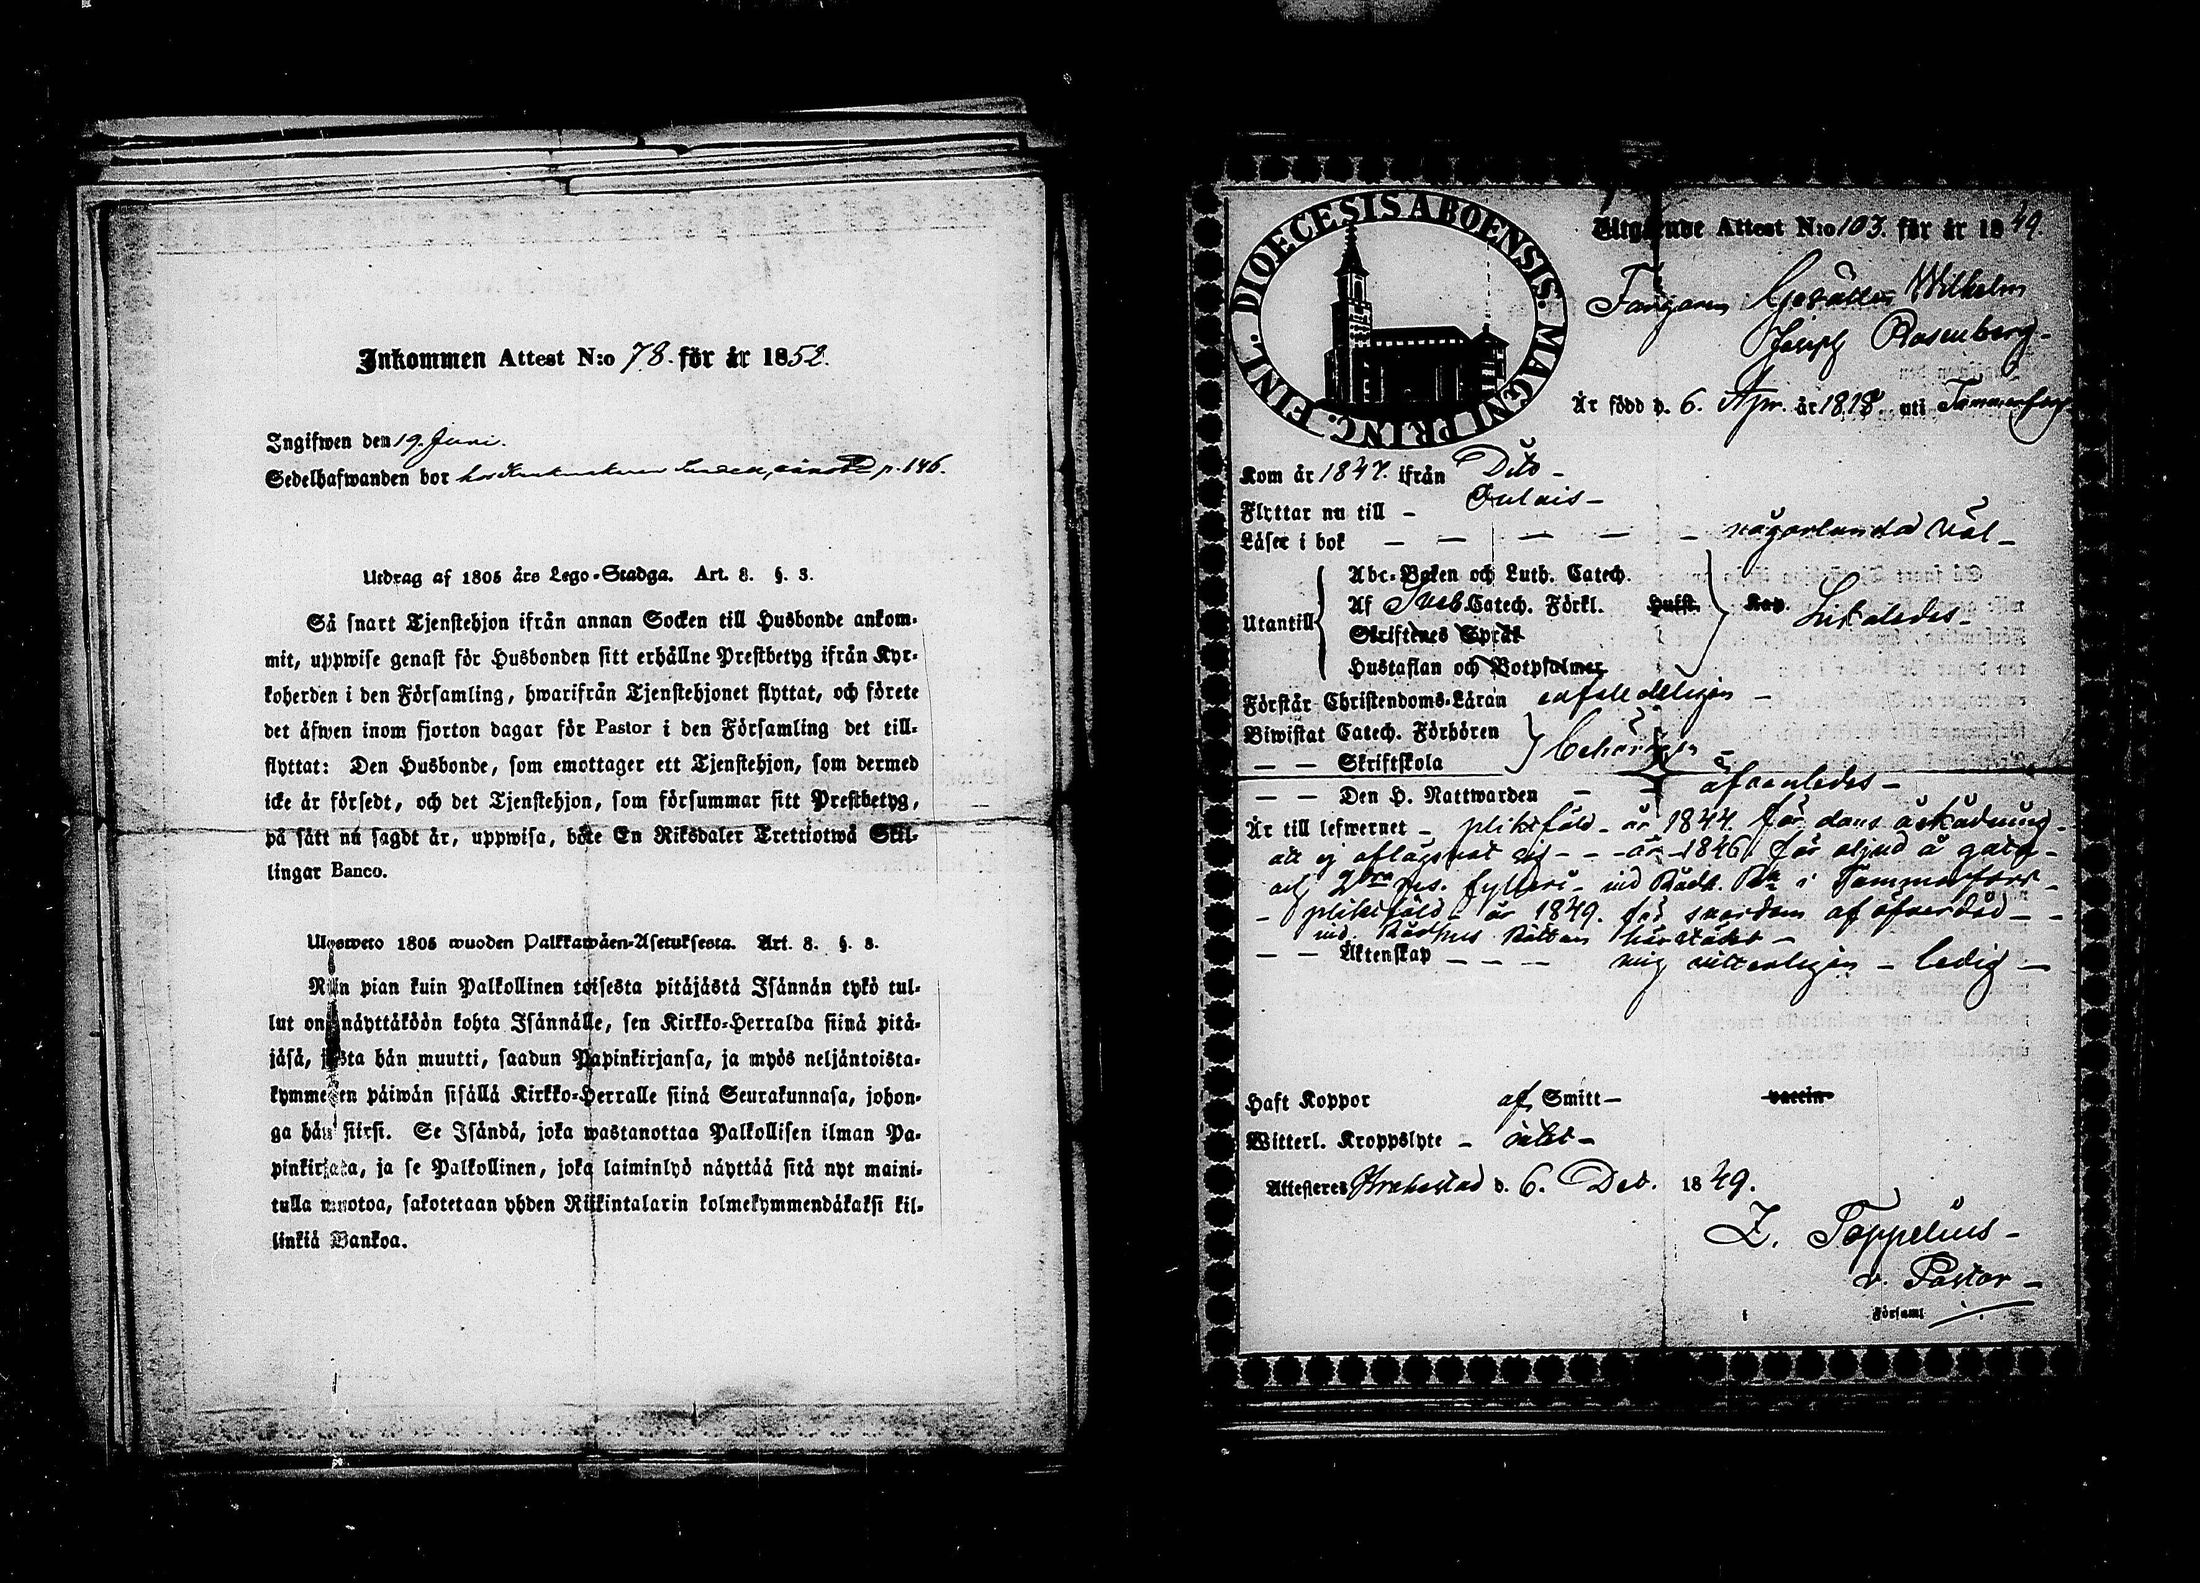 Inkommen Attest N:o 78. för år 1852.
Ingifwen den 19. Juni.
Sedelhafwanden bor hos p. 146.
Utdrag af 1805 års Lego-Stadga. Art. 8. §. 3.
Så snart Tjenstehjon ifrån annan Socken till Husbonde ankom-
mit, uppwise genast för Husbonden sitt erhållne Prestbetyg ifrån Kyr-
koherden i den Församling, hwarifrån Tjenstehjonet flyttat, och förete
det äfwen inom fjorton dagar för Pastor i den Församling det till-
flyttat: Den Husbonde, som emottager ett Tjenstehjon, som dermed
icke är försedt, och det Tjenstehjon, som försummar sitt Prestbetyg,
på sätt nu sagdt är, uppwisa, böte En Riksdaler Trettiotwå Skil-
lingar Banco.
Ulosweto 1805 wuoden Palkkawäen-Asetuksesta. Art. 8. §. 3.
Niin pian kuin Palkollinen toisesta pitäjästä Isännän tykö tul-
lut on, näyttäköön kohta Isännälle, sen Kirkko-Herralda siinä pitä-
jäsä, josta hän muutti, saadun Papinkirjansa, ja myös neljäntoista-
kymmenen päiwän sisällä Kirkko-Herralle siinä Seurakunnasa, johon-
ga hän siirsi. Se Isändä, joka wastanottaa Palkollisen ilman Pa-
pinkirjata, ja se Palkollinen, joka laiminlyö näyttää sitä nyt maini-
tulla muotoa, sakotetaan yhden Riikintalarin kolmekymmendäkaksi kil-
linkiä Bankoa.
DIOECESIS ABOENSIS. MAGNI PRINC. FINL.
Utgående Attest N:o 103. för år 1849
Fången Gustaf Wilhelm
Joseph Rosenberg-
Är född d. 6. Apr. år 1818. uti Tammerfors
Kom år 1847. ifrån Dito -
Flyttar nu till - Oulais -
Läser i bok - - - - - någorlunda väl -
Abc-Boken och Luth. Catech.
Utantill Af Sveb. Catech. Förkl. Hufst. Kap. Likaledes -
Skriftenes Språk
Hustaflan och Botpsalmer
Förstår Christendoms-Läran enfaldeligen -
Biwistat Catech. Förhören
- - Skriftskola behörigen
- - Den H. Nattwarden - - äfvenledes -
Är till lefwernet - pliktfäld - år 1844. för dans åskådning -
att ej aflägsnat sig - - år 1846. för oljud å gata -
och 2dra res. fylleri - vid Rådh. Rn i Tammerfors -
- pliktfäld - år 1849. för svordom af öfverdåd - -
vid Rådhus Rätten härstädes -
- - Äktenskap - - - mig vitterligen - ledig -
Haft Koppor af Smitt - vaccin
Witterl. Kroppslyte - intet -
Attesteres Brahestad d. 6. Dec. 1849.
Z. Toppelius -
v. Pastor -
i Församl